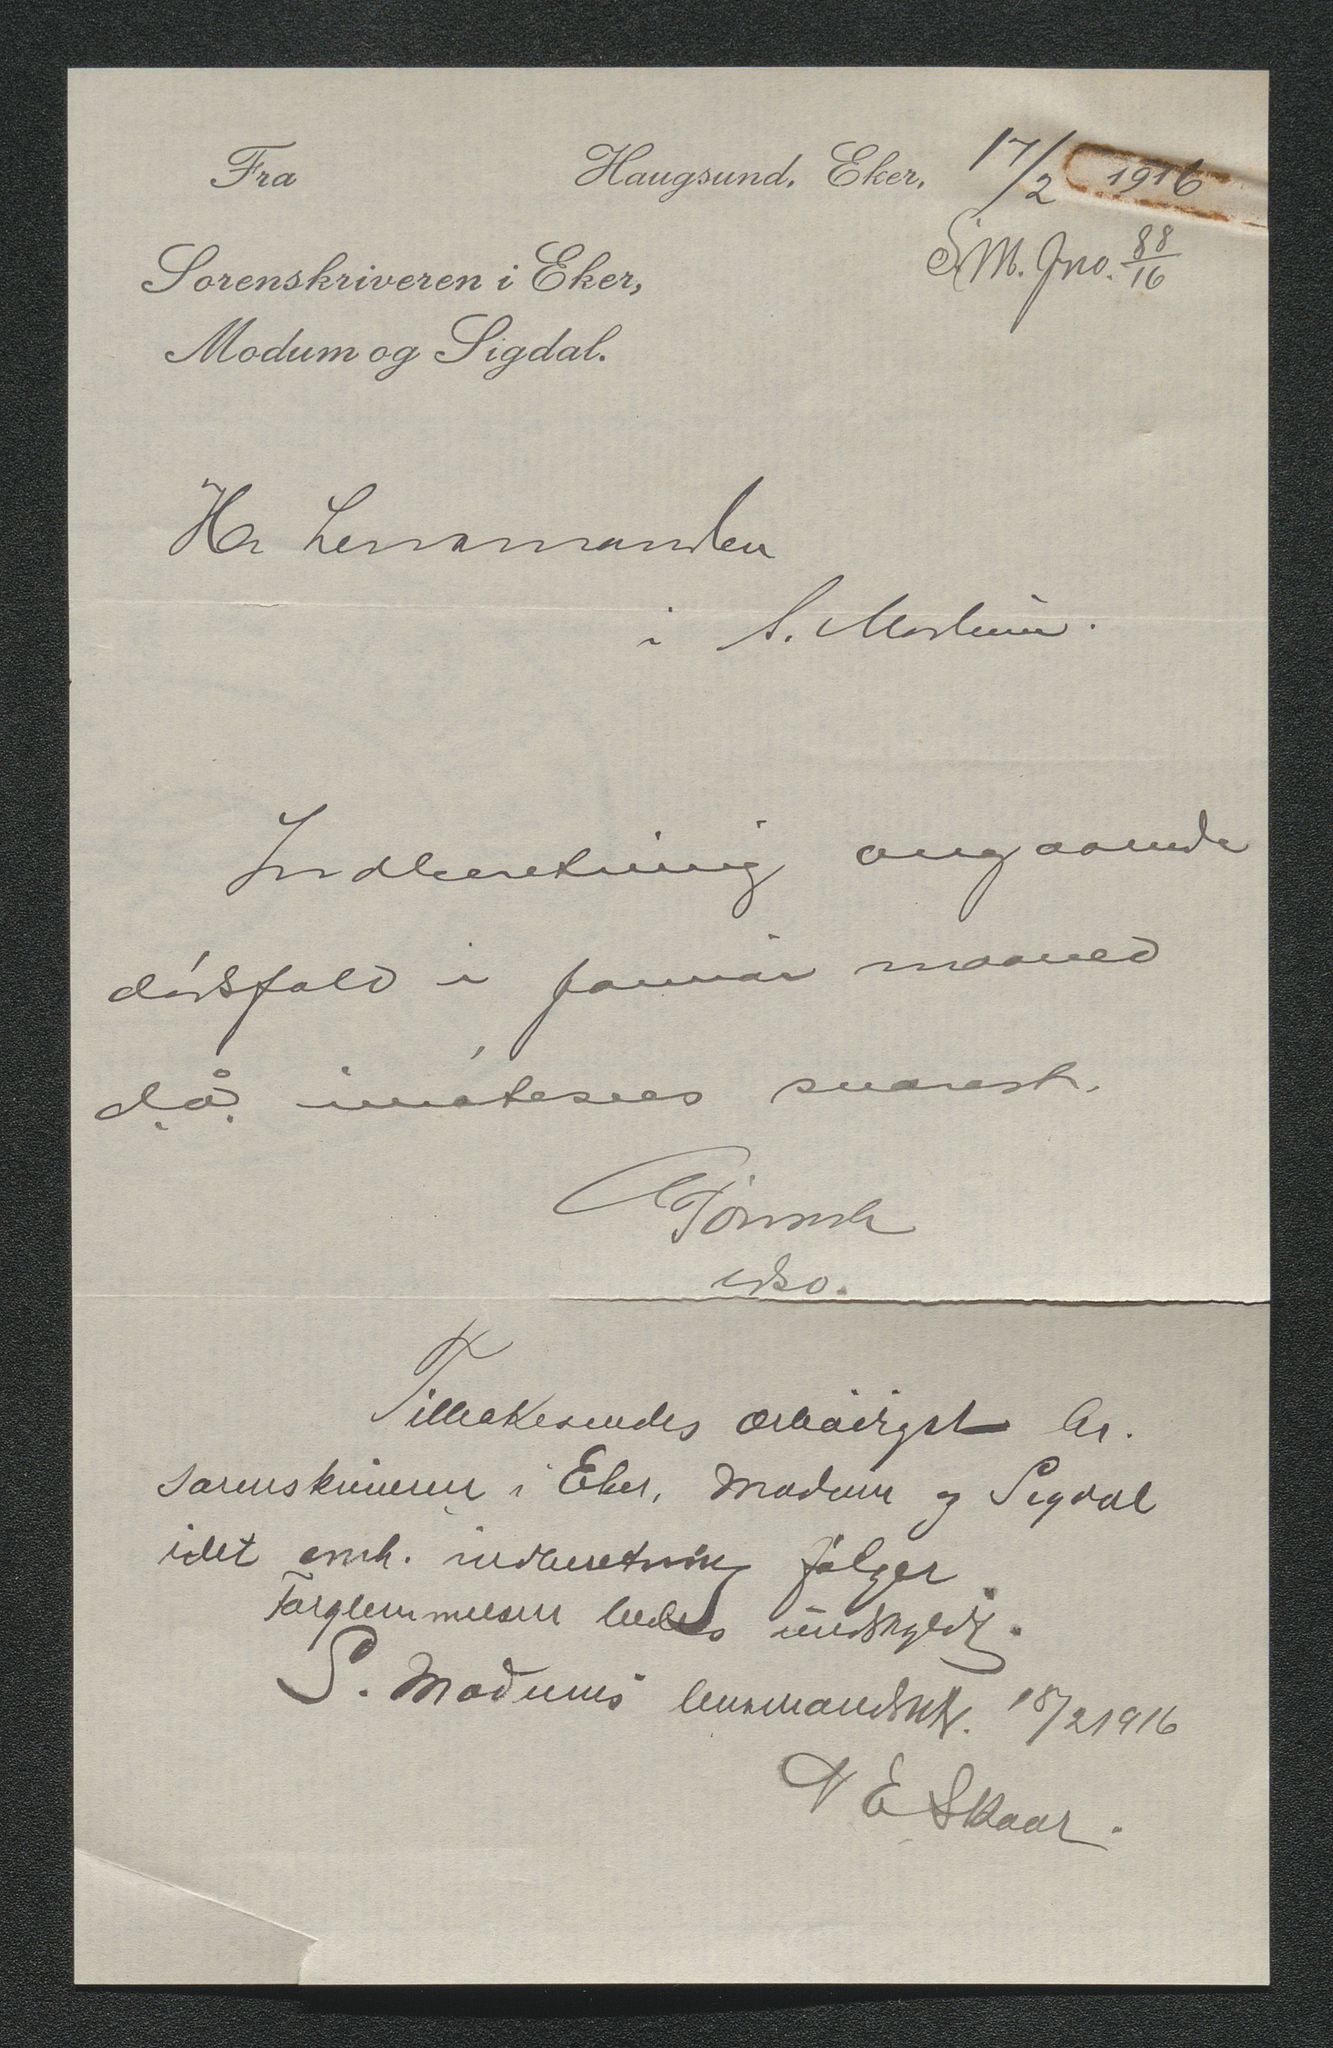 Fra Haugsund. Eker. 17/2 1916
S.M. Jno. 88/16
Sorenskriveren i Eker,
Modum og Sigdal.
Hr Lensmanden
i S. Modum.
Indberetning angaaende
dødsfald i januar maaned
d.å. imøtesees snarest.
Tilbakesendes ærbødigst hr.
sorenskriveren i Eker, Modum og Sigdal
idet omh. indberetning følger.
Forglemmelsen bedes undskyldt.
S. Modums lensmandsktr. 18/2 1916
N E Skaar.